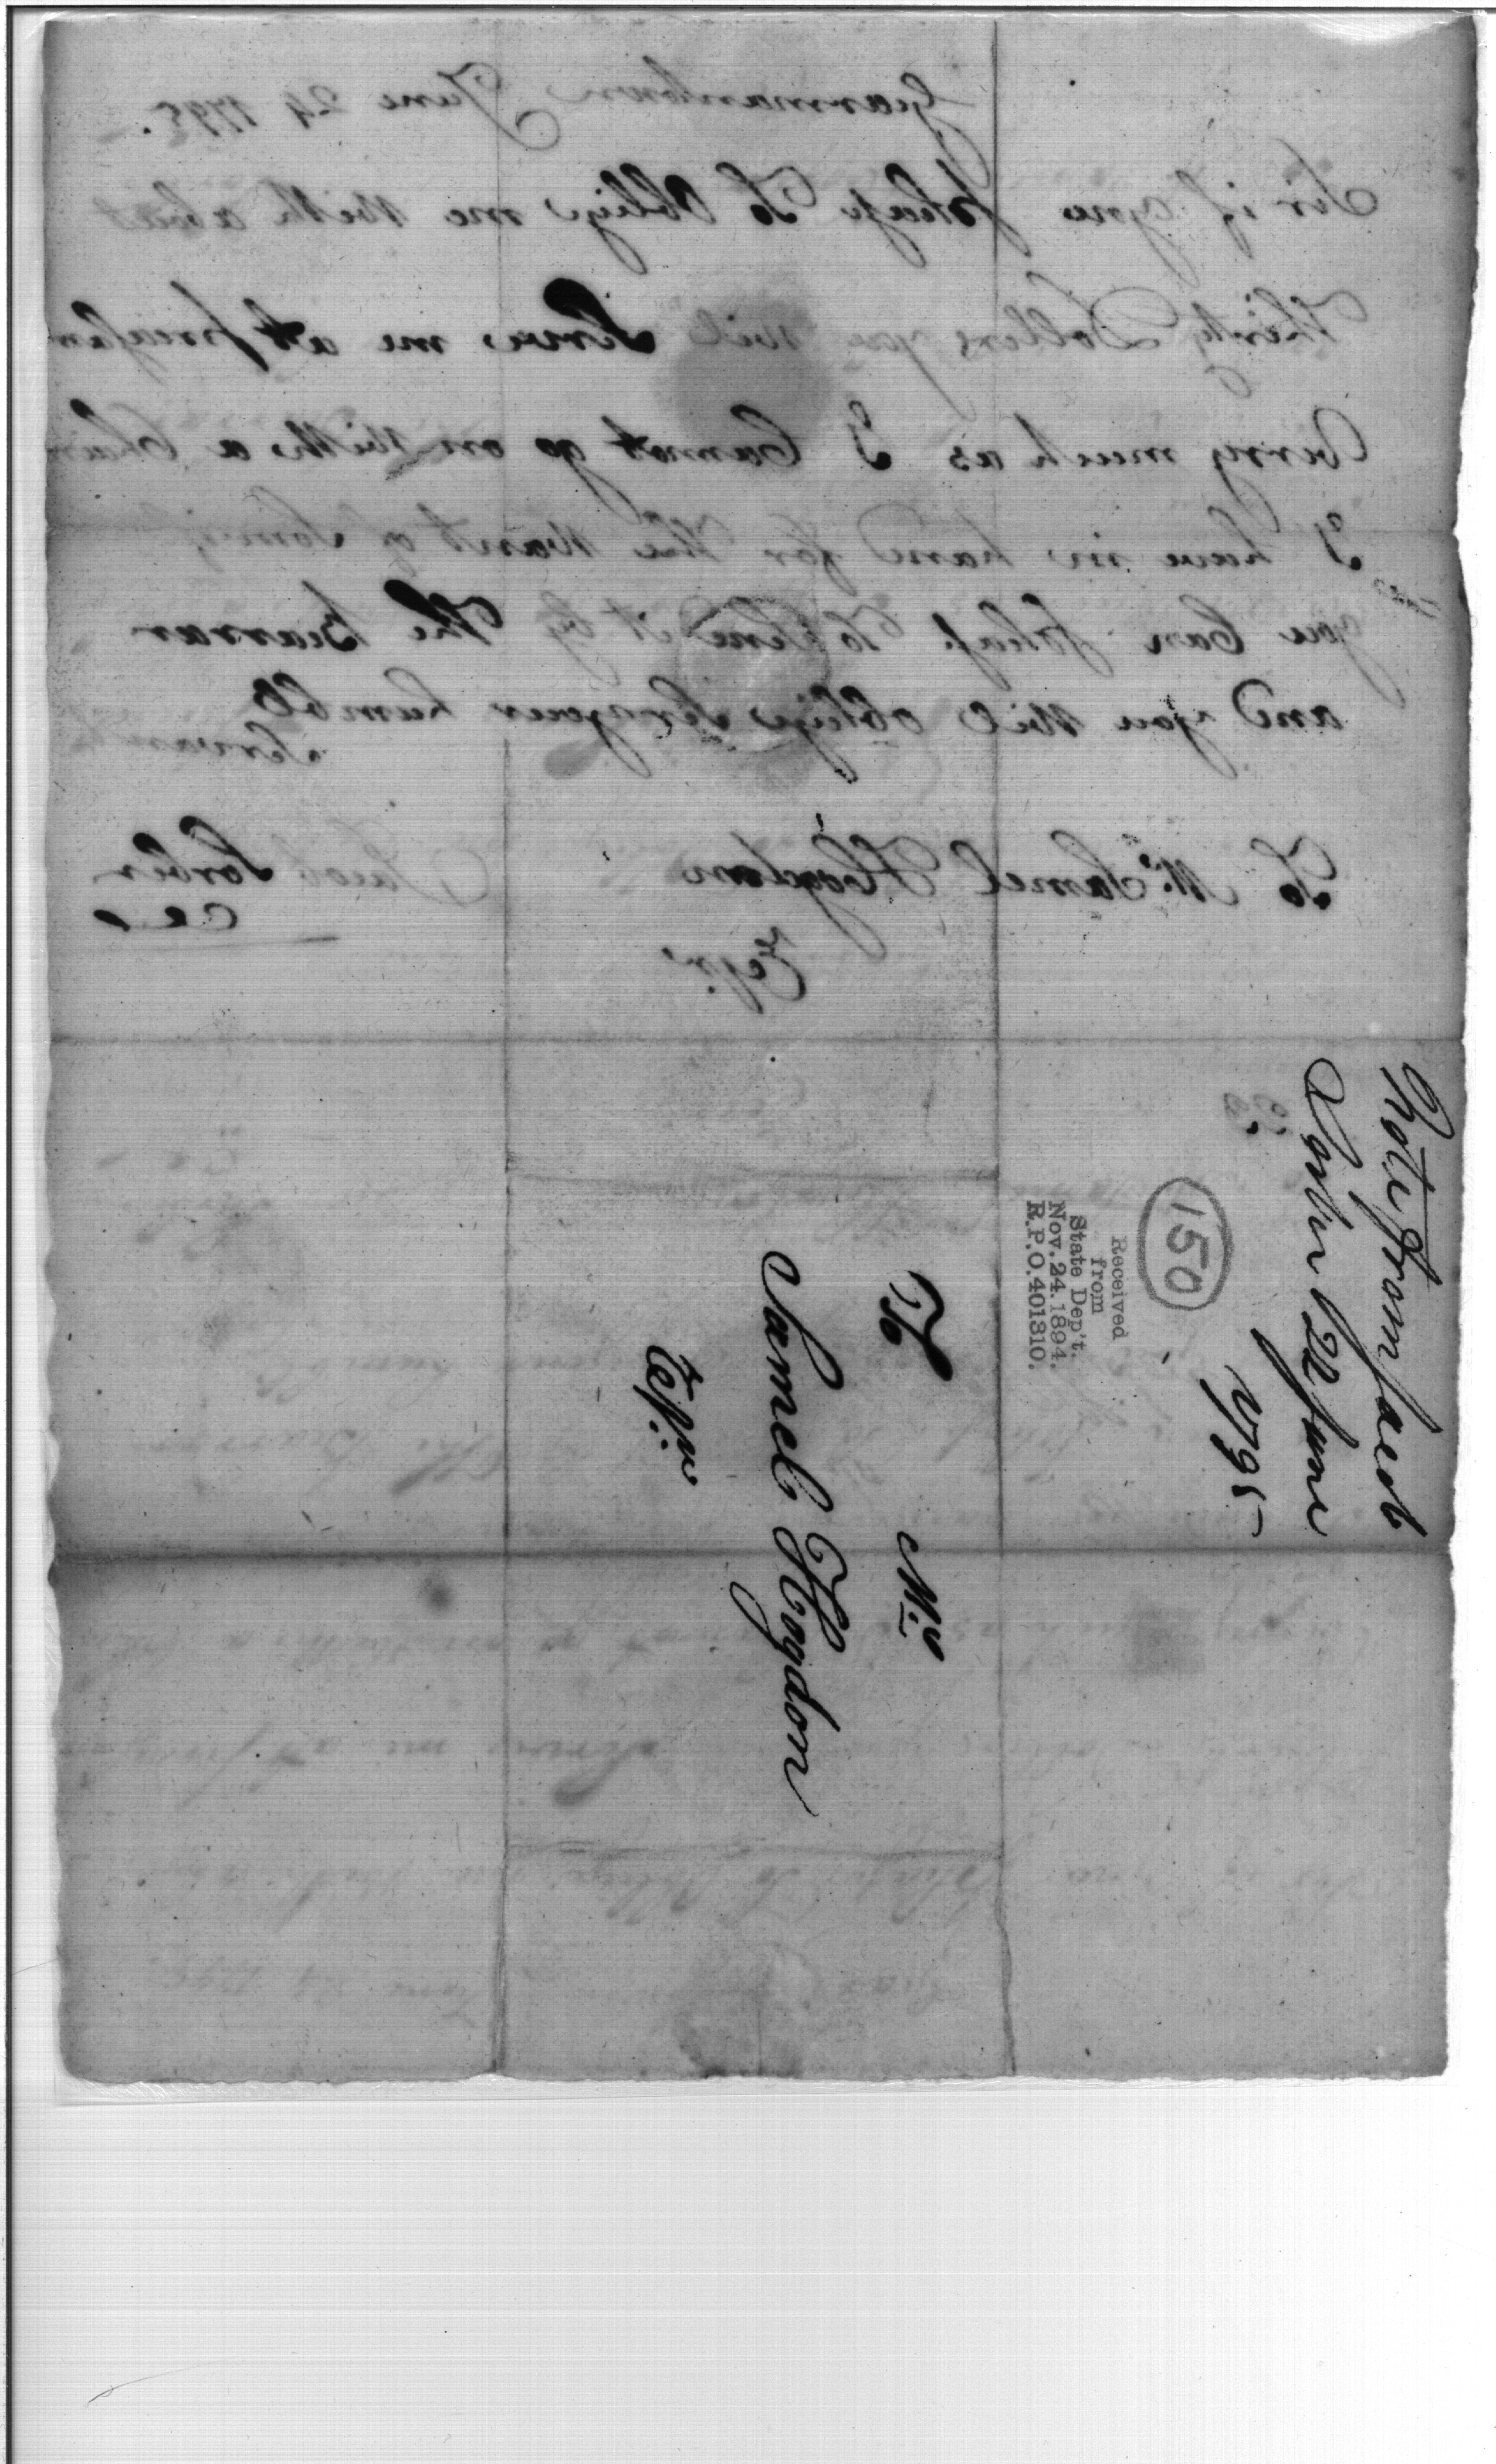 Germantown June 24 1795.
Sir if you please To Oblige me With about
Thirty Dollers you Will Serve me at
Verry much as I Cannot go on With a Chair
I have in hand for the Want of
you Can please To Send it by The Bearrar
and you Will oblige Sir your humble
Servant
Jacob Sorber
To Mr. Samel Hogdon
Esqr.
Note from Jacob
Sorber 22 June
1795
150
Received
from
State Dep't.
Nov. 24. 1894.
R.P.O. 401310.
To Mr.
Samel Hogdon
Esqr.